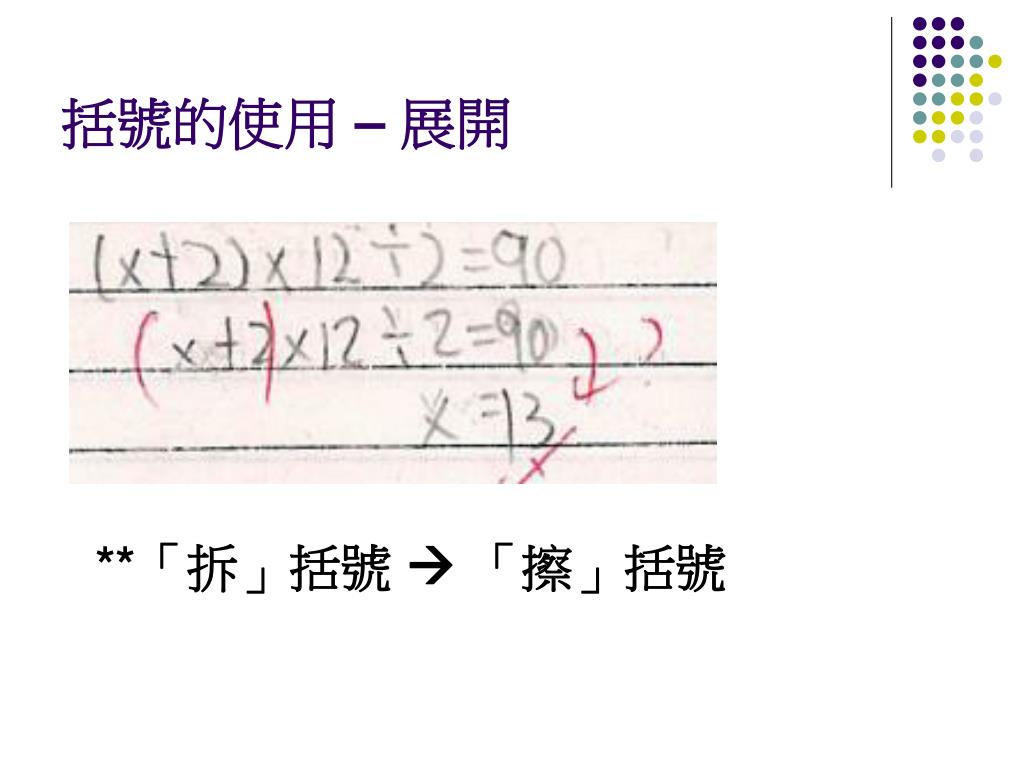 括號的使用 – 展開
(x+2)×12÷2=90
(x+2)×12÷2=90 ?
x=13
**「拆」括號 → 「擦」括號